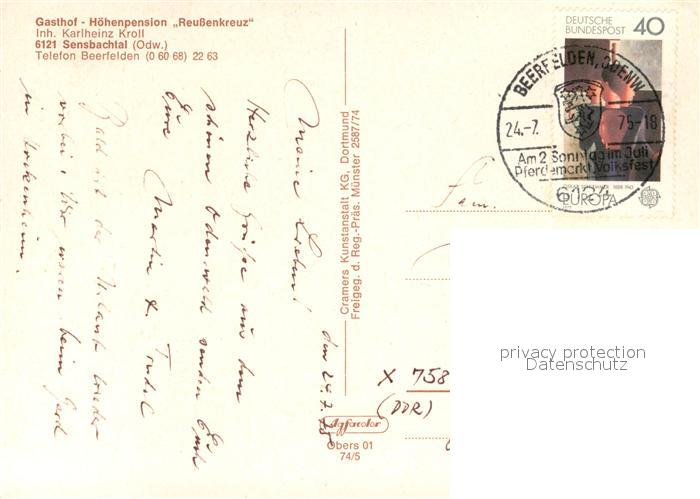 Gasthof - Höhenpension „Reußenkreuz"
Inh. Karlheinz Kroll
6121 Sensbachtal (Odw.)
Telefon Beerfelden (0 60 68) 22 63
den 24.7.75
Meine Lieben!
Herzliche Grüße aus dem
schönen Odenwald senden Euch
Eure Martin &
Bald ist der Urlaub wieder
vorbei. Wir waren beim Gerd
in Hockenheim.
Cramers Kunstanstalt KG. Dortmund
Freigeg. d. Reg.-Präs. Münster 2587/74
Agfacolor
Obers 01
74/5
DEUTSCHE
BUNDESPOST
40
BEERFELDEN, ODENW.
24.-7. 75-18
Am 2 Sonntag im Juli
Pferdemarkt Volksfest
6124
EUROPA
Fam.
X 758
(DDR)
privacy protection
Datenschutz